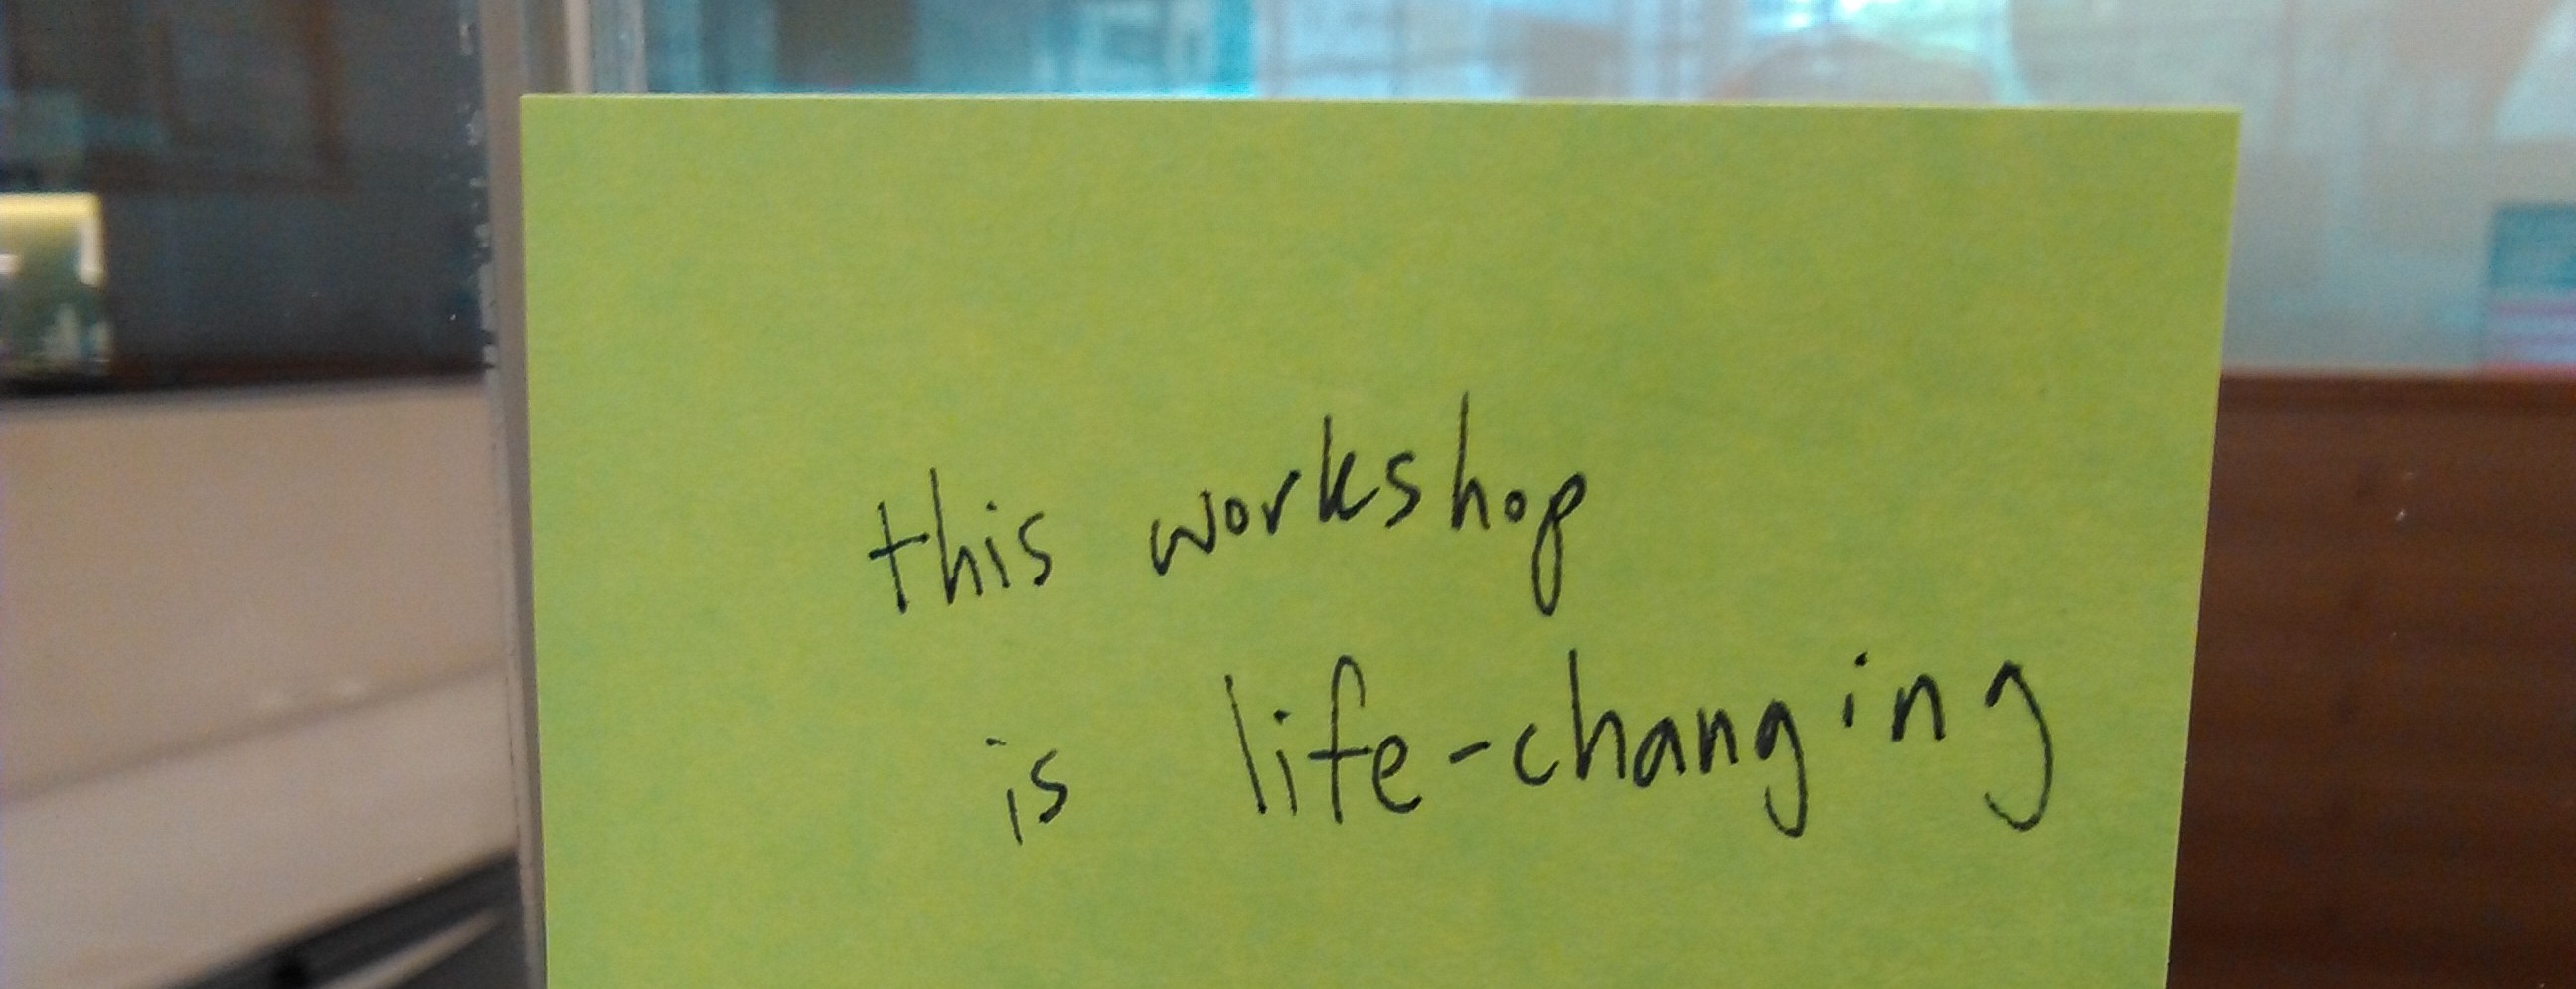 this workshop
is life-changing